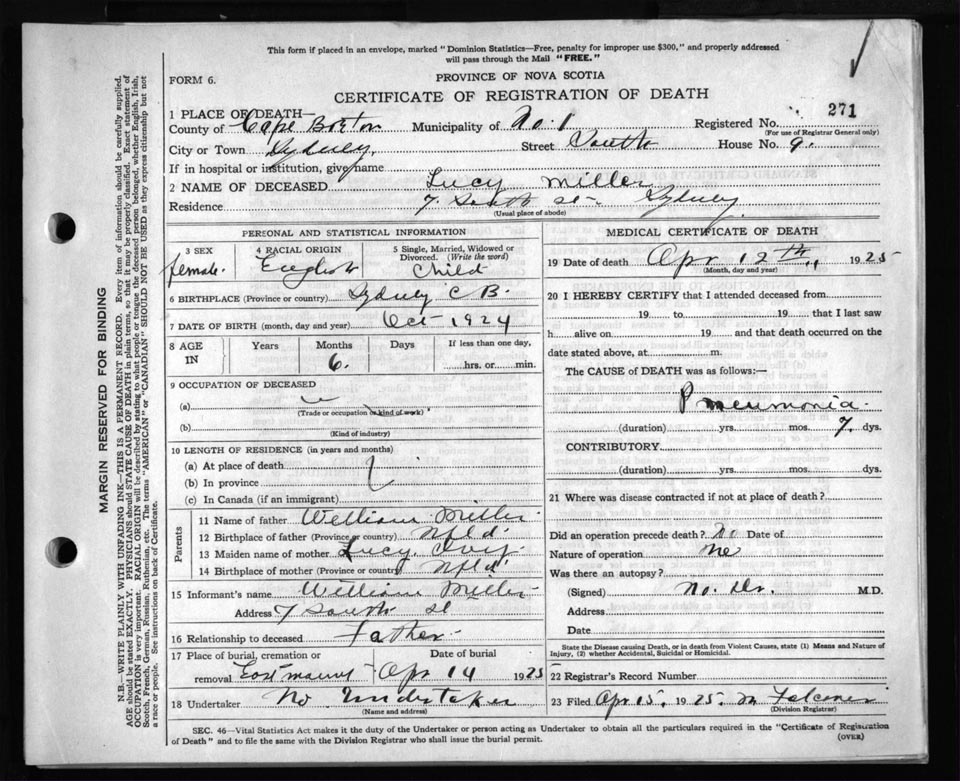 This form if placed in an envelope, marked "Dominion Statistics—Free, penalty for improper use $300," and properly addressed
will pass through the Mail "FREE."
FORM 6.
PROVINCE OF NOVA SCOTIA
CERTIFICATE OF REGISTRATION OF DEATH
1 PLACE OF DEATH
County of Cape Breton Municipality of No. 1 Registered No. 271
(For use of Registrar General only)
City or Town Sydney Street South House No. 9.
If in hospital or institution, give name
2 NAME OF DECEASED Lucy Miller
Residence 7 South St- Sydney
(Usual place of abode)
PERSONAL AND STATISTICAL INFORMATION
3 SEX
female.
4 RACIAL ORIGIN
English
5 Single, Married, Widowed or
Divorced. (Write the word)
Child
6 BIRTHPLACE (Province or country) Sydney C B.
7 DATE OF BIRTH (month, day and year) Oct 1924
8 AGE
IN
Years
Months
6.
Days
If less than one day,
hrs. or min.
9 OCCUPATION OF DECEASED
(a)
(Trade or occupation or kind of work)
(b)
(Kind of industry)
10 LENGTH OF RESIDENCE (in years and months)
(a) At place of death
(b) In province
(c) In Canada (if an immigrant)
Parents
11 Name of father William Miller
12 Birthplace of father (Province or country) Nfld
13 Maiden name of mother Lucy
14 Birthplace of mother (Province or country) Nfld
15 Informant's name William Miller
Address 7 South St
16 Relationship to deceased Father
17 Place of burial, cremation or Date of burial
removal Apr 14 1925
18 Undertaker No Undertaker
(Name and address)
MEDICAL CERTIFICATE OF DEATH
19 Date of death Apr 12th 1925
(Month, day and year)
20 I HEREBY CERTIFY that I attended deceased from
19 to 19 that I last saw
h alive on 19 and that death occurred on the
date stated above, at m.
The CAUSE OF DEATH was as follows:—
Pneumonia
(duration) yrs. mos. 7. dys.
CONTRIBUTORY
(duration) yrs. mos. dys.
21 Where was disease contracted if not at place of death?
Did an operation precede death? No Date of
Nature of operation no
Was there an autopsy?
(Signed) No. Dr. M.D.
Address
Date
State the Disease causing Death, or in death from Violent Causes, state (1) Means and Nature of
Injury, (2) whether Accidental, Suicidal or Homicidal.
22 Registrar's Record Number
23 Filed Apr 15. 1925. M Falconer
(Division Registrar)
SEC. 46—Vital Statistics Act makes it the duty of the Undertaker or person acting as Undertaker to obtain all the particulars required in the "Certificate of Registration
of Death" and to file the same with the Division Registrar who shall issue the burial permit.
(OVER)
MARGIN RESERVED FOR BINDING
N.B.—WRITE PLAINLY WITH UNFADING INK—THIS IS A PERMANENT RECORD. Every item of information should be carefully supplied.
AGE should be stated EXACTLY. PHYSICIANS should STATE CAUSE OF DEATH in plain terms, so that it may be properly classified. Exact statement of
OCCUPATION is very important. RACIAL ORIGIN will be described by stating to what people or tongue the deceased person belonged, whether English, Irish,
Scotch, French, German, Russian, Ruthenian, etc. The terms "AMERICAN" or "CANADIAN" SHOULD NOT BE USED as they express citizenship but not
a race or people. See instructions on back of Certificate.